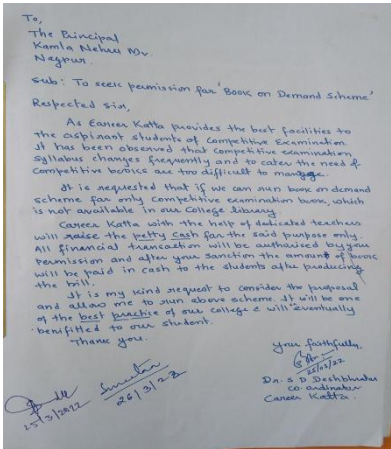 To,
The Principal
Kamla Nehru Mv.
Nagpur.
Sub: To seek permission for 'Book on Demand Scheme'
Respected Sir,
As Career Katta provides the best facilities to
the aspirant students of Competitive Examination.
It has been observed that competitive examination
syllabus changes frequently and to cater the need of
competitive books are too difficult to manage.
It is requested that if we can run book on demand
scheme for only competitive examination book, which
is not available in our College library.
Career Katta with the help of dedicated teachers
will raise the petty cash for the said purpose only.
All financial transaction will be authorised by you
permission and after your sanction the amount of book
will be paid in cash to the students after producing
the bill.
It is my kind request to consider the proposal
and allow me to run above scheme. It will be one
of the best practice of our college & will eventually
benifitted to our student.
Thank you.
Your faithfully,
25/03/22
Dr. S D Deshbhratar
Co-ordinator
Career Katta.
25/3/2022
26/3/22